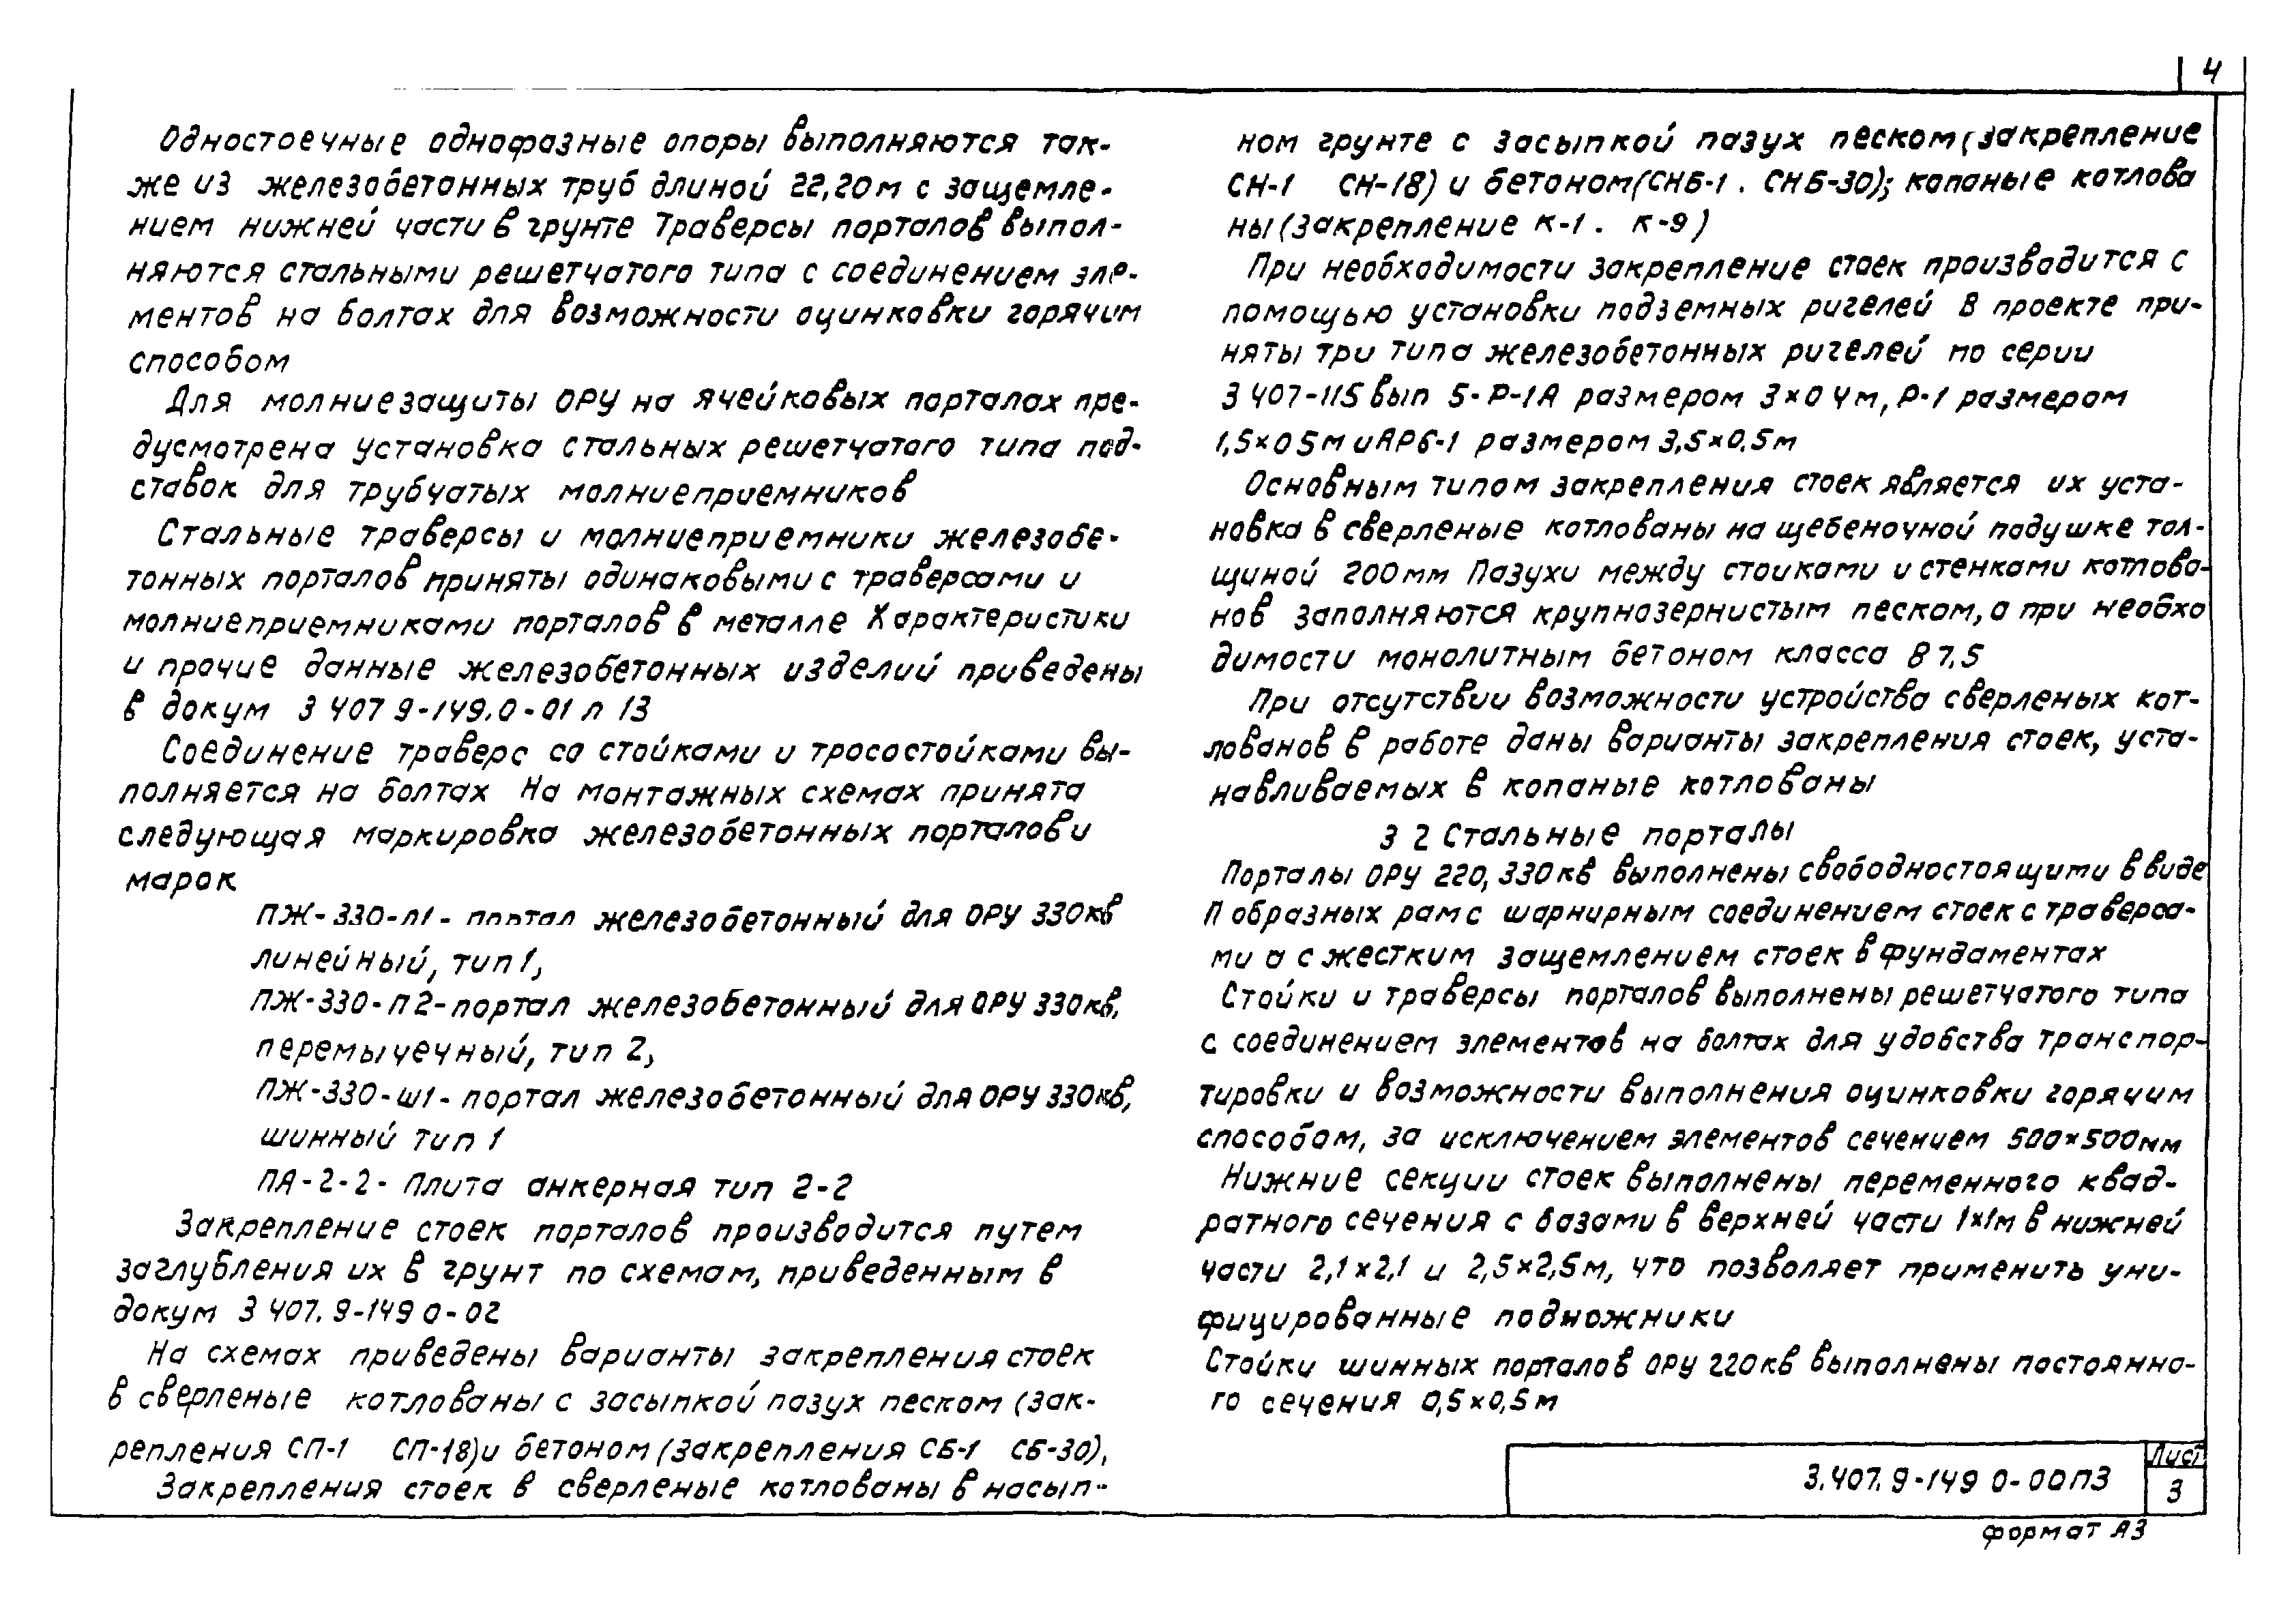 4
Одностоечные однофазные опоры выполняются так-
же из железобетонных труб длиной 22,20м с защемле-
нием нижней части в грунте Траверсы порталов выпол-
няются стальными решетчатого типа с соединением эле-
ментов на болтах для возможности оцинковки горячим
способом
Для молниезащиты ОРУ на ячейковых порталах пре-
дусмотрена установка стальных решетчатого типа под-
ставок для трубчатых молниеприемников
Стальные траверсы и молниеприемники железобе-
тонных порталов приняты одинаковыми с траверсами и
молниеприемниками порталов в металле Характеристики
и прочие данные железобетонных изделий приведены
в докум 3 407 9-149.0-01 л 13
Соединение траверс со стойками и тросостойками вы-
полняется на болтах На монтажных схемах принята
следующая маркировка железобетонных порталов и
марок
ПЖ-330-Л1- портал железобетонный для ОРУ 330кв
линейный, тип 1,
ПЖ-330-П2-портал железобетонный для ОРУ 330кв,
перемычечный, тип 2,
ПЖ-330-Ш1- портал железобетонный для ОРУ 330кв,
шинный тип 1
ПА-2-2- Плита анкерная тип 2-2
Закрепление стоек порталов производится путем
заглубления их в грунт по схемам, приведенным в
докум 3 407. 9-149 0-02
На схемах приведены варианты закрепления стоек
в сверленые котлованы с засыпкой пазух песком (зак-
репления СП-1 СП-18) и бетоном (закрепления СБ-1 СБ-30),
Закрепления стоек в сверленые котлованы в насып-
ном грунте с засыпкой пазух песком (закрепление
СН-1 СН-18) и бетоном (СНБ-1 . СНБ-30); копаные котлова
ны (закрепление К-1 . К-9)
При необходимости закрепление стоек производится с
помощью установки подземных ригелей В проекте при-
няты три типа железобетонных ригелей по серии
3 407-115 вып 5- Р-1А размером 3×0 4м, Р-1 размером
1,5×0 5м и АР6-1 размером 3,5×0.5м
Основным типом закрепления стоек является их уста-
новка в сверленые котлованы на щебеночной подушке тол-
щиной 200мм Пазухи между стоиками и стенками котлова-
нов заполняются крупнозернистым песком, а при необхо
димости монолитным бетоном класса В 7.5
При отсутствии возможности устройства сверленых кот-
лованов в работе даны варианты закрепления стоек, уста-
навливаемых в копаные котлованы
3 2 Стальные порталы
Порталы ОРУ 220, 330кв выполнены свободностоящими в виде
П образных рам с шарнирным соединением стоек с траверса-
ми а с жестким защемлением стоек в фундаментах
Стойки и траверсы порталов выполнены решетчатого типа
с соединением элементов на болтах для удобства транспор-
тировки и возможности выполнения оцинковки горячим
способом, за исключением элементов сечением 500×500мм
Нижние секции стоек выполнены переменного квад-
ратного сечения с базами в верхней части 1×1м в нижней
части 2,1×2,1 и 2,5×2,5м, что позволяет применить уни-
фицированные подножники
Стойки шинных порталов ОРУ 220кв выполнены постоянно-
го сечения 0,5×0,5м
3.407. 9-149 0-00ПЗ
Лист
3
формат А3